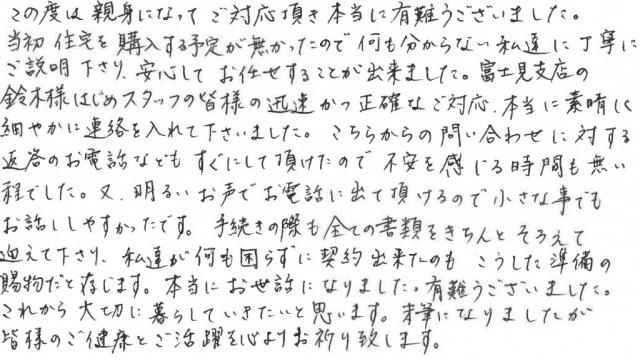 この度は親身になってご対応頂き本当に有難うございました。
当初住宅を購入する予定が無かったので何も分からない私達に丁寧に
ご説明下さり、安心してお任せすることが出来ました。富士見支店の
鈴木様はじめスタッフの皆様の迅速かつ正確なご対応、本当に素晴しく
細やかに連絡を入れて下さいました。こちらからの問い合わせに対する
返答のお電話などもすぐにして頂けたので不安を感じる時間も無い
程でした。又、明るいお声でお電話に出て頂けるので小さな事でも
お話ししやすかったです。手続きの際も全ての書類をきちんとそろえて
迎えて下さり、私達が何も困らずに契約出来たのもこうした準備の
賜物だと存じます。本当にお世話になりました。有難うございました。
これから大切に暮らしていきたいと思います。末筆になりましたが
皆様のご健康とご活躍を心よりお祈り致します。